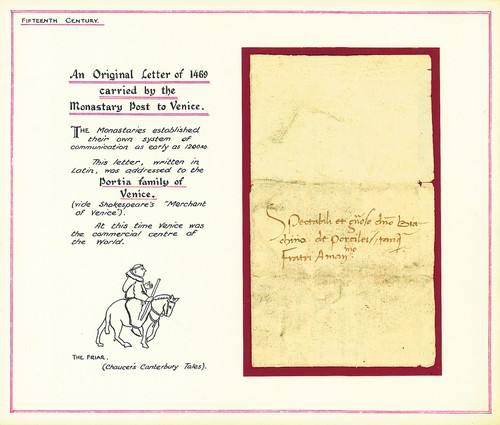 FIFTEENTH CENTURY.
An Original Letter of 1469
carried by the
Monastary Post to Venice.
THE Monastaries established
their own system of
communication as early as 1200AD
This letter, written in
Latin, was addressed to the
Portia family of
Venice.
(vide Shakespeare's "Merchant
of Venice").
At this time Venice was
the commercial centre of
the World.
THE FRIAR.
(Chaucer's Canterbury Tales).
Spectabili et
de Porcileis
Fratri